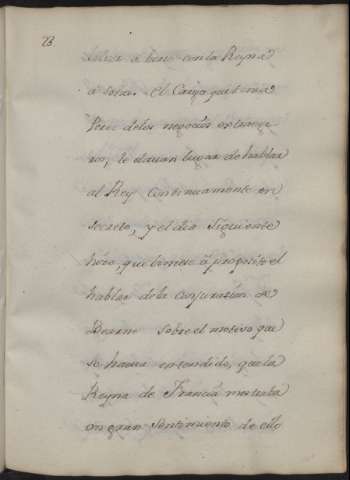 23.
a bien con la Reyna
a solas. El Cargo que tenia
Perez de los negocios extrange
ros, le dauan lugar de hablar
al Rey continuamente en
secreto, y el dia siguiente
hizo, que viniese à proposito el
hablar de la conjurazion de
Bearne sobre el motivo que
se hauia entendido, que la
Reyna de Francia mostraba
un gran sentimiento de ello